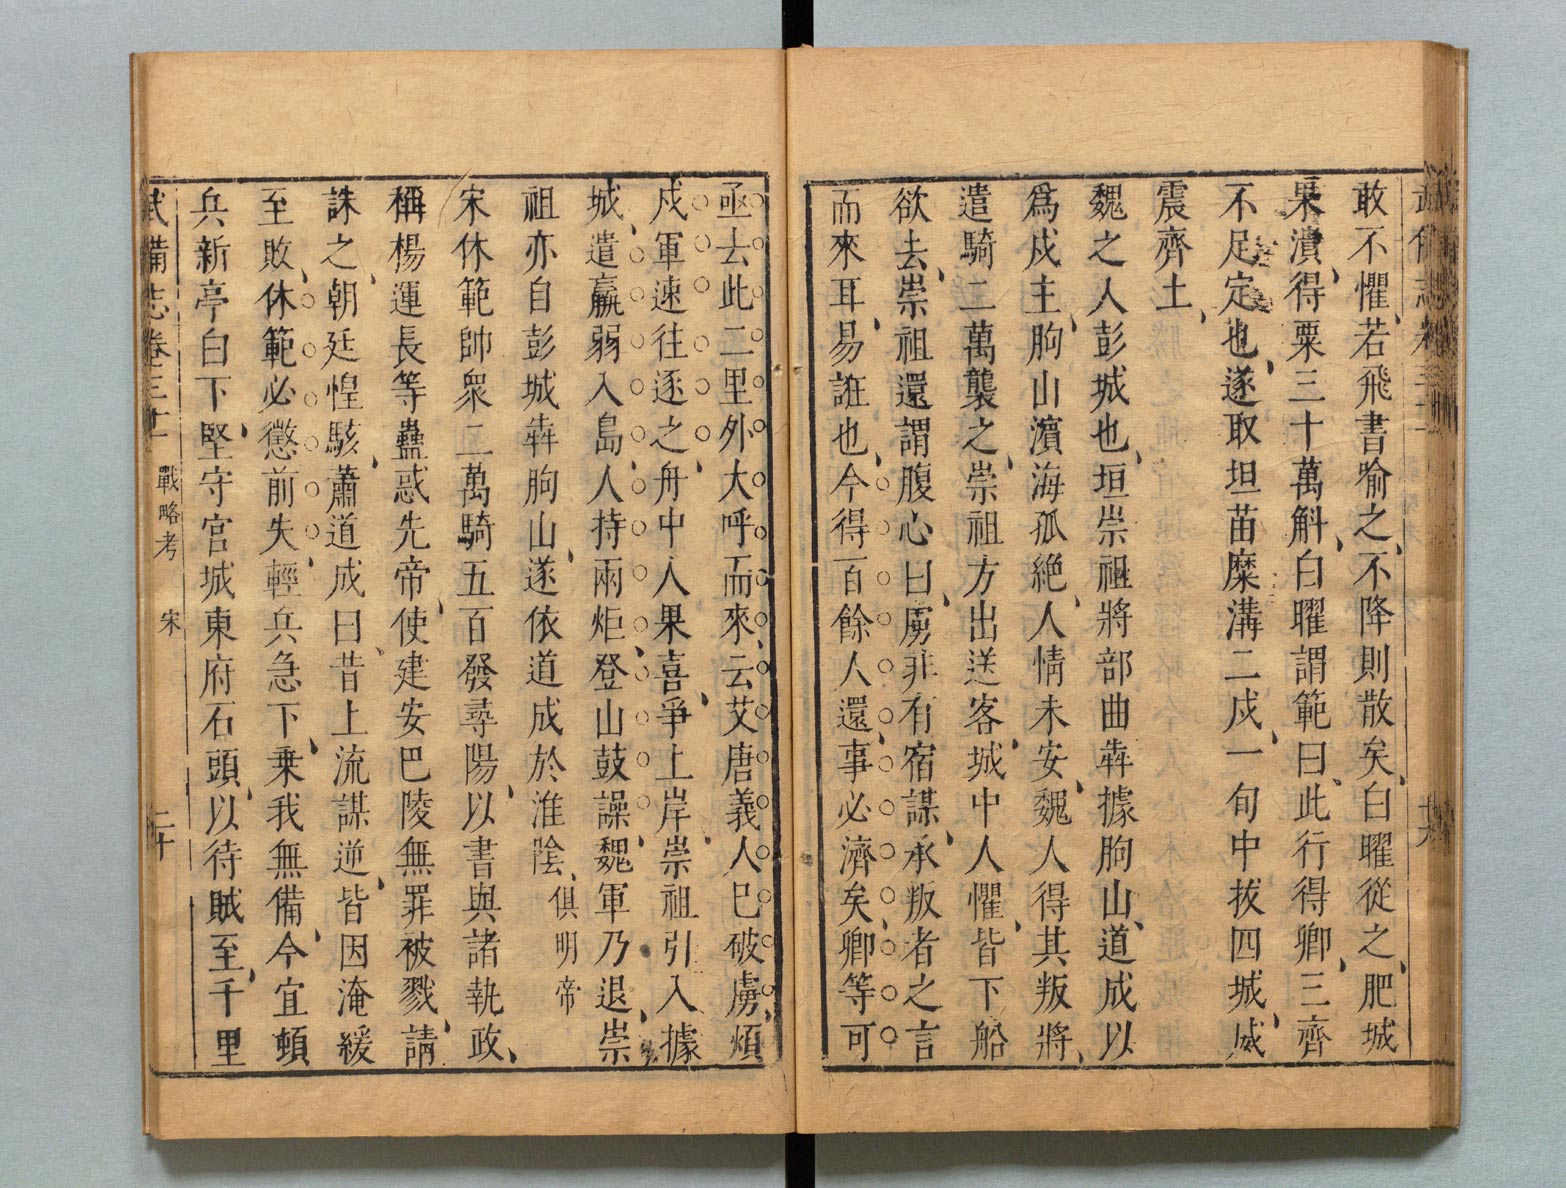 敢不懼、若飛書喻之、不降則散矣、白曜從之、肥城
果潰、得粟三十萬斛、白曜謂範曰、此行得卿、三齊
不足定也、遂取垣苗糜溝二戍、一旬中拔四城、威
震齊土、
魏之人彭城也、垣崇祖將部曲奔據朐山、道成以
爲戍主、朐山濱海孤絶、人情未安、魏人得其叛將、
遣騎二萬襲之、崇祖方出送客、城中人懼、皆下船
欲去、崇祖還謂腹心曰、虜非有宿謀、承叛者之言
而來耳、易誑也、今得百餘人還、事必濟矣、卿等可
亟去此二里外大呼而來、云艾唐義人巳破虜、須
戍軍速往逐之、舟中人果喜、爭上岸、崇祖引入據
城、遣羸弱入島、人持兩炬、登山鼓譟、魏軍乃退、崇
祖亦自彭城奔朐山、遂依道成於淮陰、俱明帝
宋休範帥衆二萬騎五百發尋陽、以書與諸執政、
稱楊運長等蠱惑先帝、使建安巴陵無罪被戮、請
誅之、朝廷惶駭、蕭道成曰、昔上流謀逆、皆因淹緩
至敗、休範必懲前失、輕兵急下、乗我無備、今宜頓
兵新亭白下、堅守宫城東府石頭、以待賊至、千里
武備志卷三十 戰略考 宋 二十